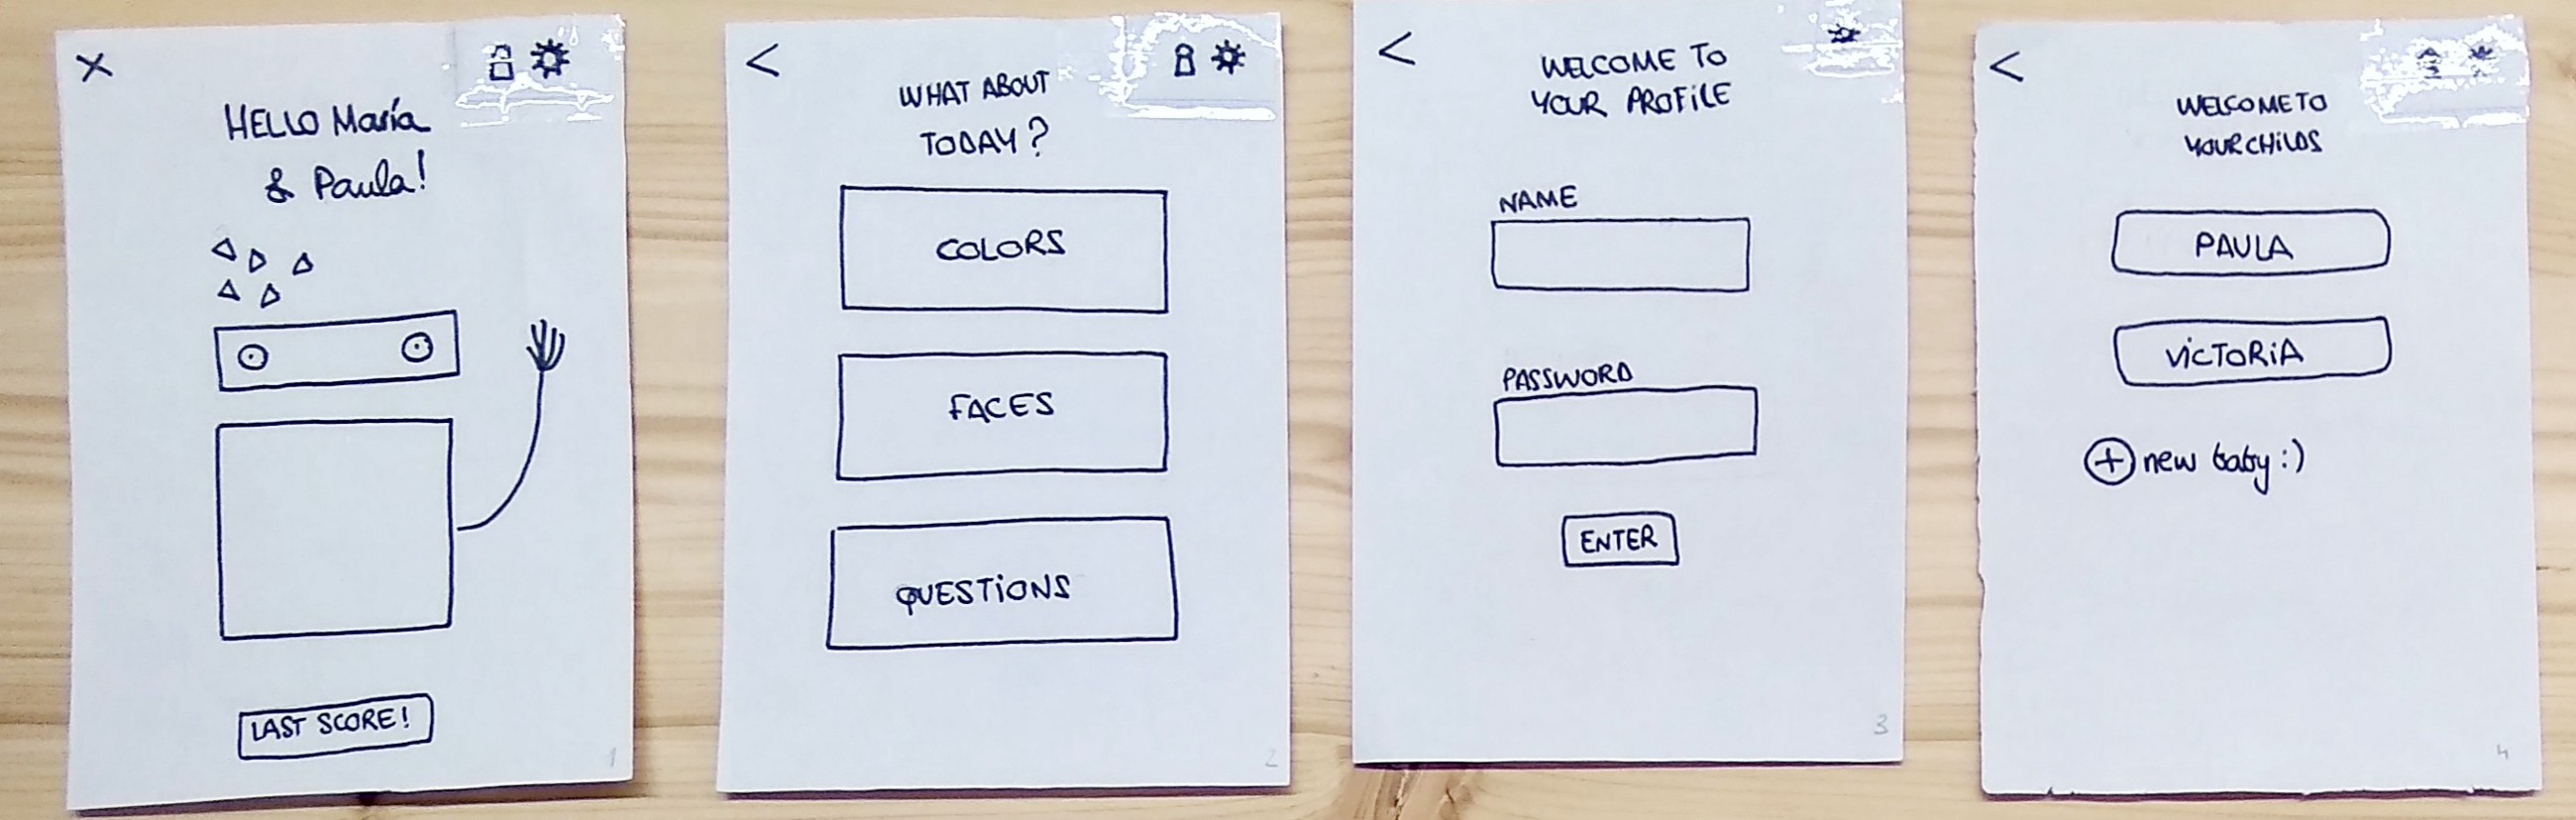 HELLO María
& Paula!
LAST SCORE!
1
WHAT ABOUT
TODAY?
COLORS
FACES
QUESTIONS
2
WELCOME TO
YOUR PROFILE
NAME
PASSWORD
ENTER
3
WELCOME TO
YOUR CHILDS
PAULA
VICTORIA
+ new baby :)
4